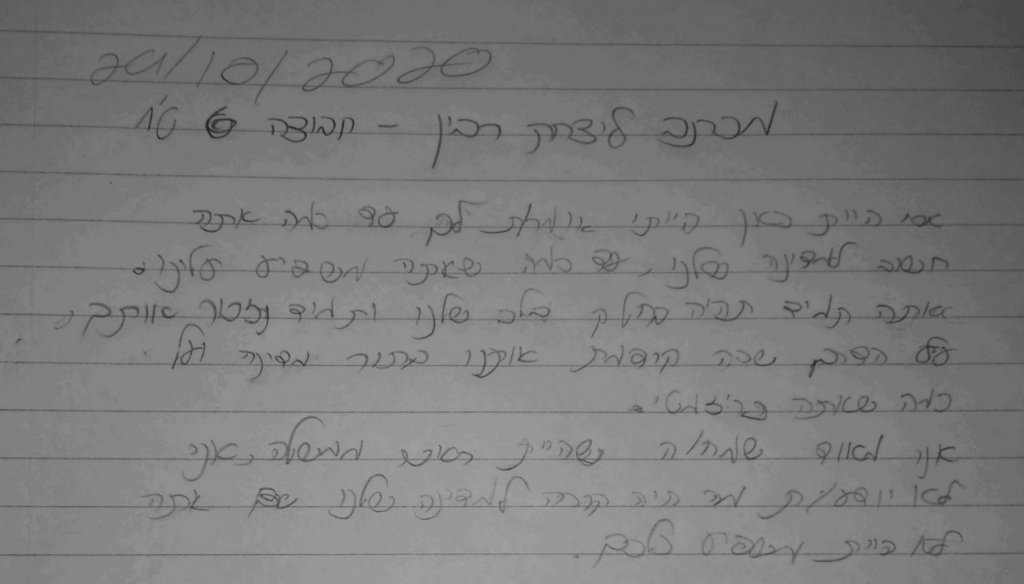 29/10/2020
מכתב ליצחק רבין - קבוצה 6 ט'1
אם היית כאן הייתי אומרת לך עד כמה אתה
חשוב למדינה שלנו, עד כמה שאתה משפיע עלינו.
אתה תמיד תהיה בחלק בלב שלנו ותמיד נזכור אותך,
על הדרך שבה קידמת אותנו בתור מדינה ועל
כמה שאתה כריזמטי.
אני מאוד שמח/ה שהיית ראש ממשלה, אני
לא יודע/ת מה היה קורה למדינה שלנו אם אתה
לא היית משפיע